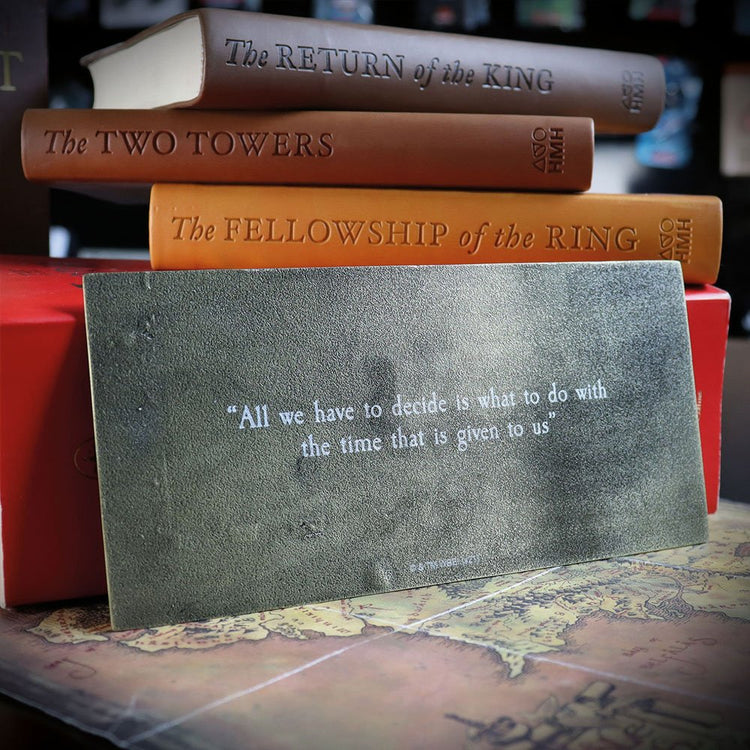 The RETURN of the KING
HMH
The TWO TOWERS
HMH
The FELLOWSHIP of the RING
HMH
“All we have to decide is what to do with
the time that is given to us”